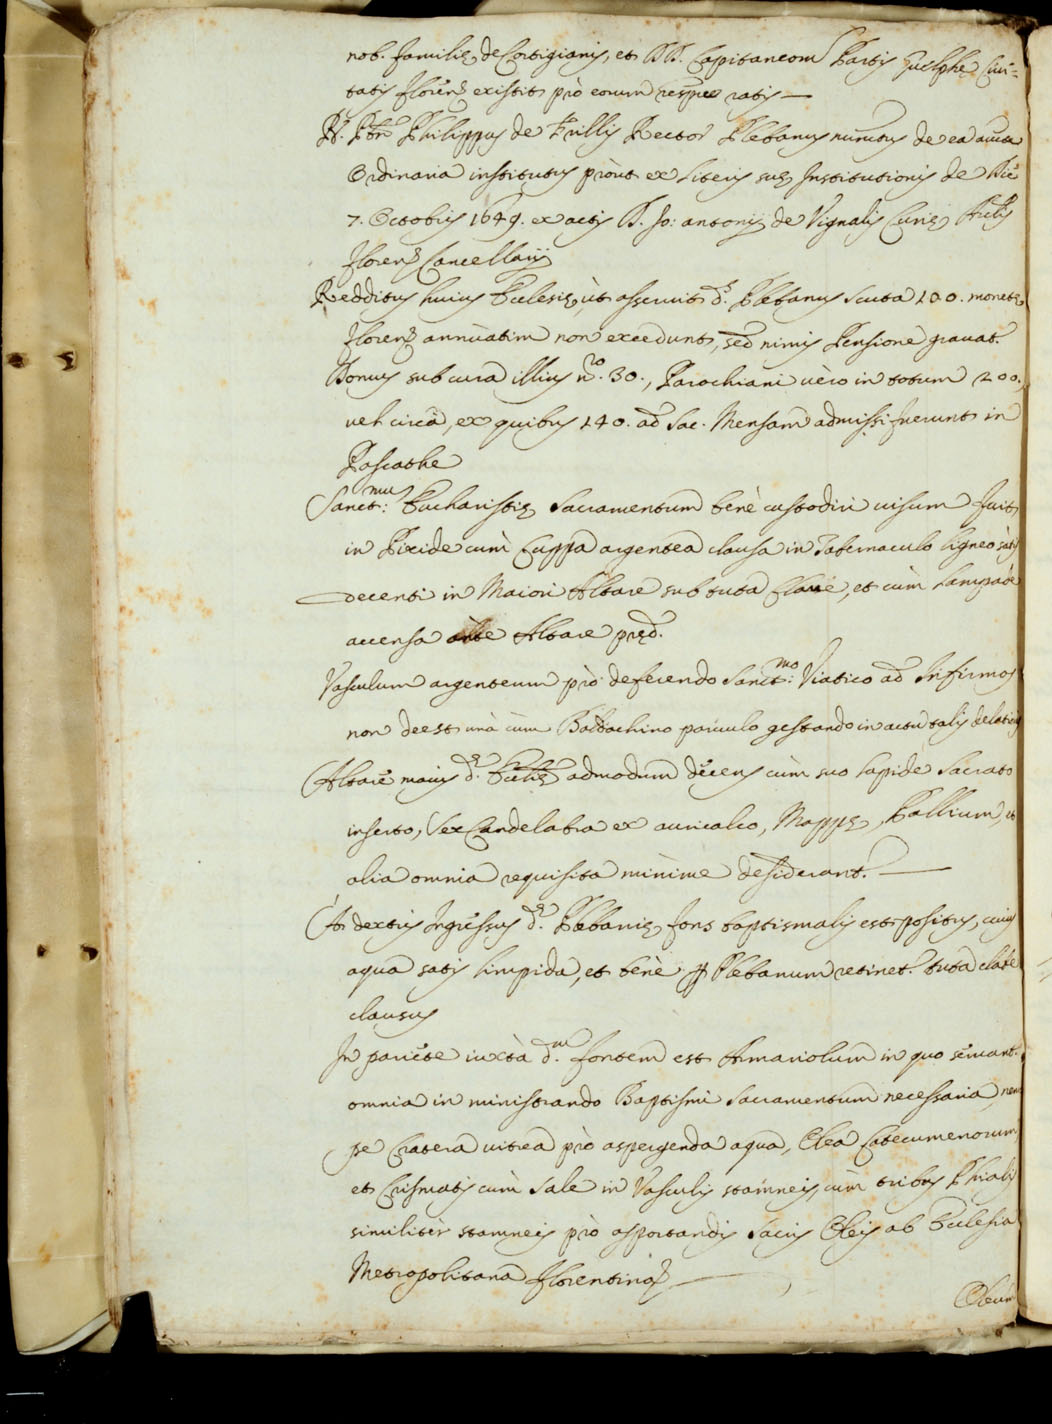 nob. familię de Cortigianis, et DD. Capitaneom Partis Guelphę Ciui=
tatis Floren. existit prò eorum respee ratis —
R. Pbr Philippus de Trillis Rector Plebanus nuncus de ea auctẽ
Ordinaria institutus pròut ex literis suę Institutionis de Die
7. Octobris 1649. ex actis D. Jo: antonij de Vignalis Curię Archlis
floren. Cancellarij
Redditus huius Ecclesię, ùt asseruit d.s Plebanus scuta 100. monetę
floren. annùatim non excedunt, sed nimis Pensione grauat.r
Domus sub cura illius n.ro 30., Parochiani uèro in totum 200.,
uel circà, ex quibus 140. ad Sac. Mensam admissi fuerunt in
Pascathe
Sanct:mu Eucharistię Sacramentum benè custodiri uisum fuit
in Pixide cum Cuppa argentea clausa in Tabernaculo ligneo sàtis
decenti in Maiori Altare sub tuta Claue, et cùm Lampade
accensa ante Altare pręd.
Vasculum argenteum prò deferendo Sanct:mo Viatico ad Infirmos
non deest unà cùm Baldachino paruulo gestando in actu talis delationis
Altare maius d.ę Ecclię admodum decens cùm suo lapide Sacrato
inserto, Sex Candelabra ex auricalco, Mappę, Pallium, et
alia omnia requisita minime desiderant.r —
A dextris Ingressus d.ę Plebanię fons baptismalis est positus, cuius
aqua satis limpida, et benè p Plebanum retinet.r tuta claue
clausus
In pariete iuxtà d.m fontem est Armariolum in quo seruant.r
omnia in ministrando Baptismi Sacramentum necessaria, nem
pe Cratera uitrea prò aspergenda aqua, Olea Catecumenorum,
et Crismatis cùm Sale in Vasculis stamneis, cùm tribus Phialis
similitèr stamneis prò asportandis Sacris Oleis ab Ecclesia
Metropolitana florentina —
Oleum